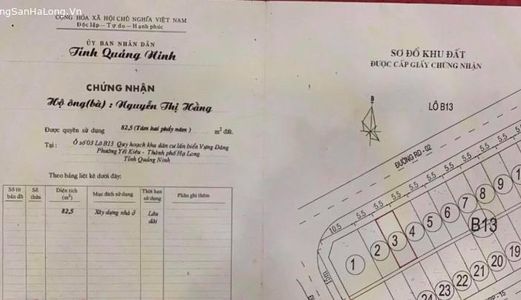 ngSanHaLong.Vn
CỘNG HÒA XÃ HỘI CHỦ NGHĨA VIỆT NAM
Độc lập - Tự do - Hạnh phúc
ỦY BAN NHÂN DÂN
Tỉnh Quảng Ninh
CHỨNG NHẬN
Hộ ông(bà) : Nguyễn Thị Hằng
Được quyền sử dụng 82,5 (Tám hai phẩy năm) m² đất.
Tại : Ô số 03 Lô B13 Quy hoạch khu dân cư lấn biển Vựng Đâng
Phường Yết Kiêu - Thành phố Hạ Long
Tỉnh Quảng Ninh
Theo bảng liệt kê dưới đây:
Số tờ bản đồ Số thửa Diện tích (m²) Mục đích sử dụng Thời hạn sử dụng Phần ghi thêm
82,5 Xây dựng nhà ở Lâu dài
SƠ ĐỒ KHU ĐẤT
ĐƯỢC CẤP GIẤY CHỨNG NHẬN
B
LÔ B13
ĐƯỜNG RD - 02
10.5 5.5 5.5 5.5 5.5 5.5 5.5 5.5
1 2 3 4 5 6 7 8 9
B13
15m
24 21 20 19